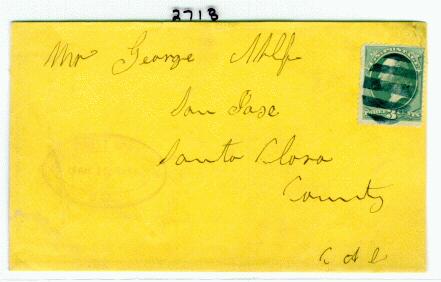 2718
Mr George
San Jose
Santa Clara
County
Cal